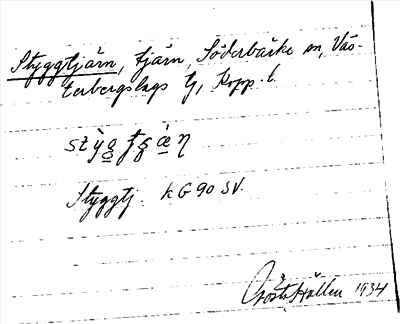 Styggtjärn, tjärn, Söderbärke sn, Väs-
terbergslags tg, Kopp. l.
Styggtj. kG90 SV.
Gösta Hållen 1934